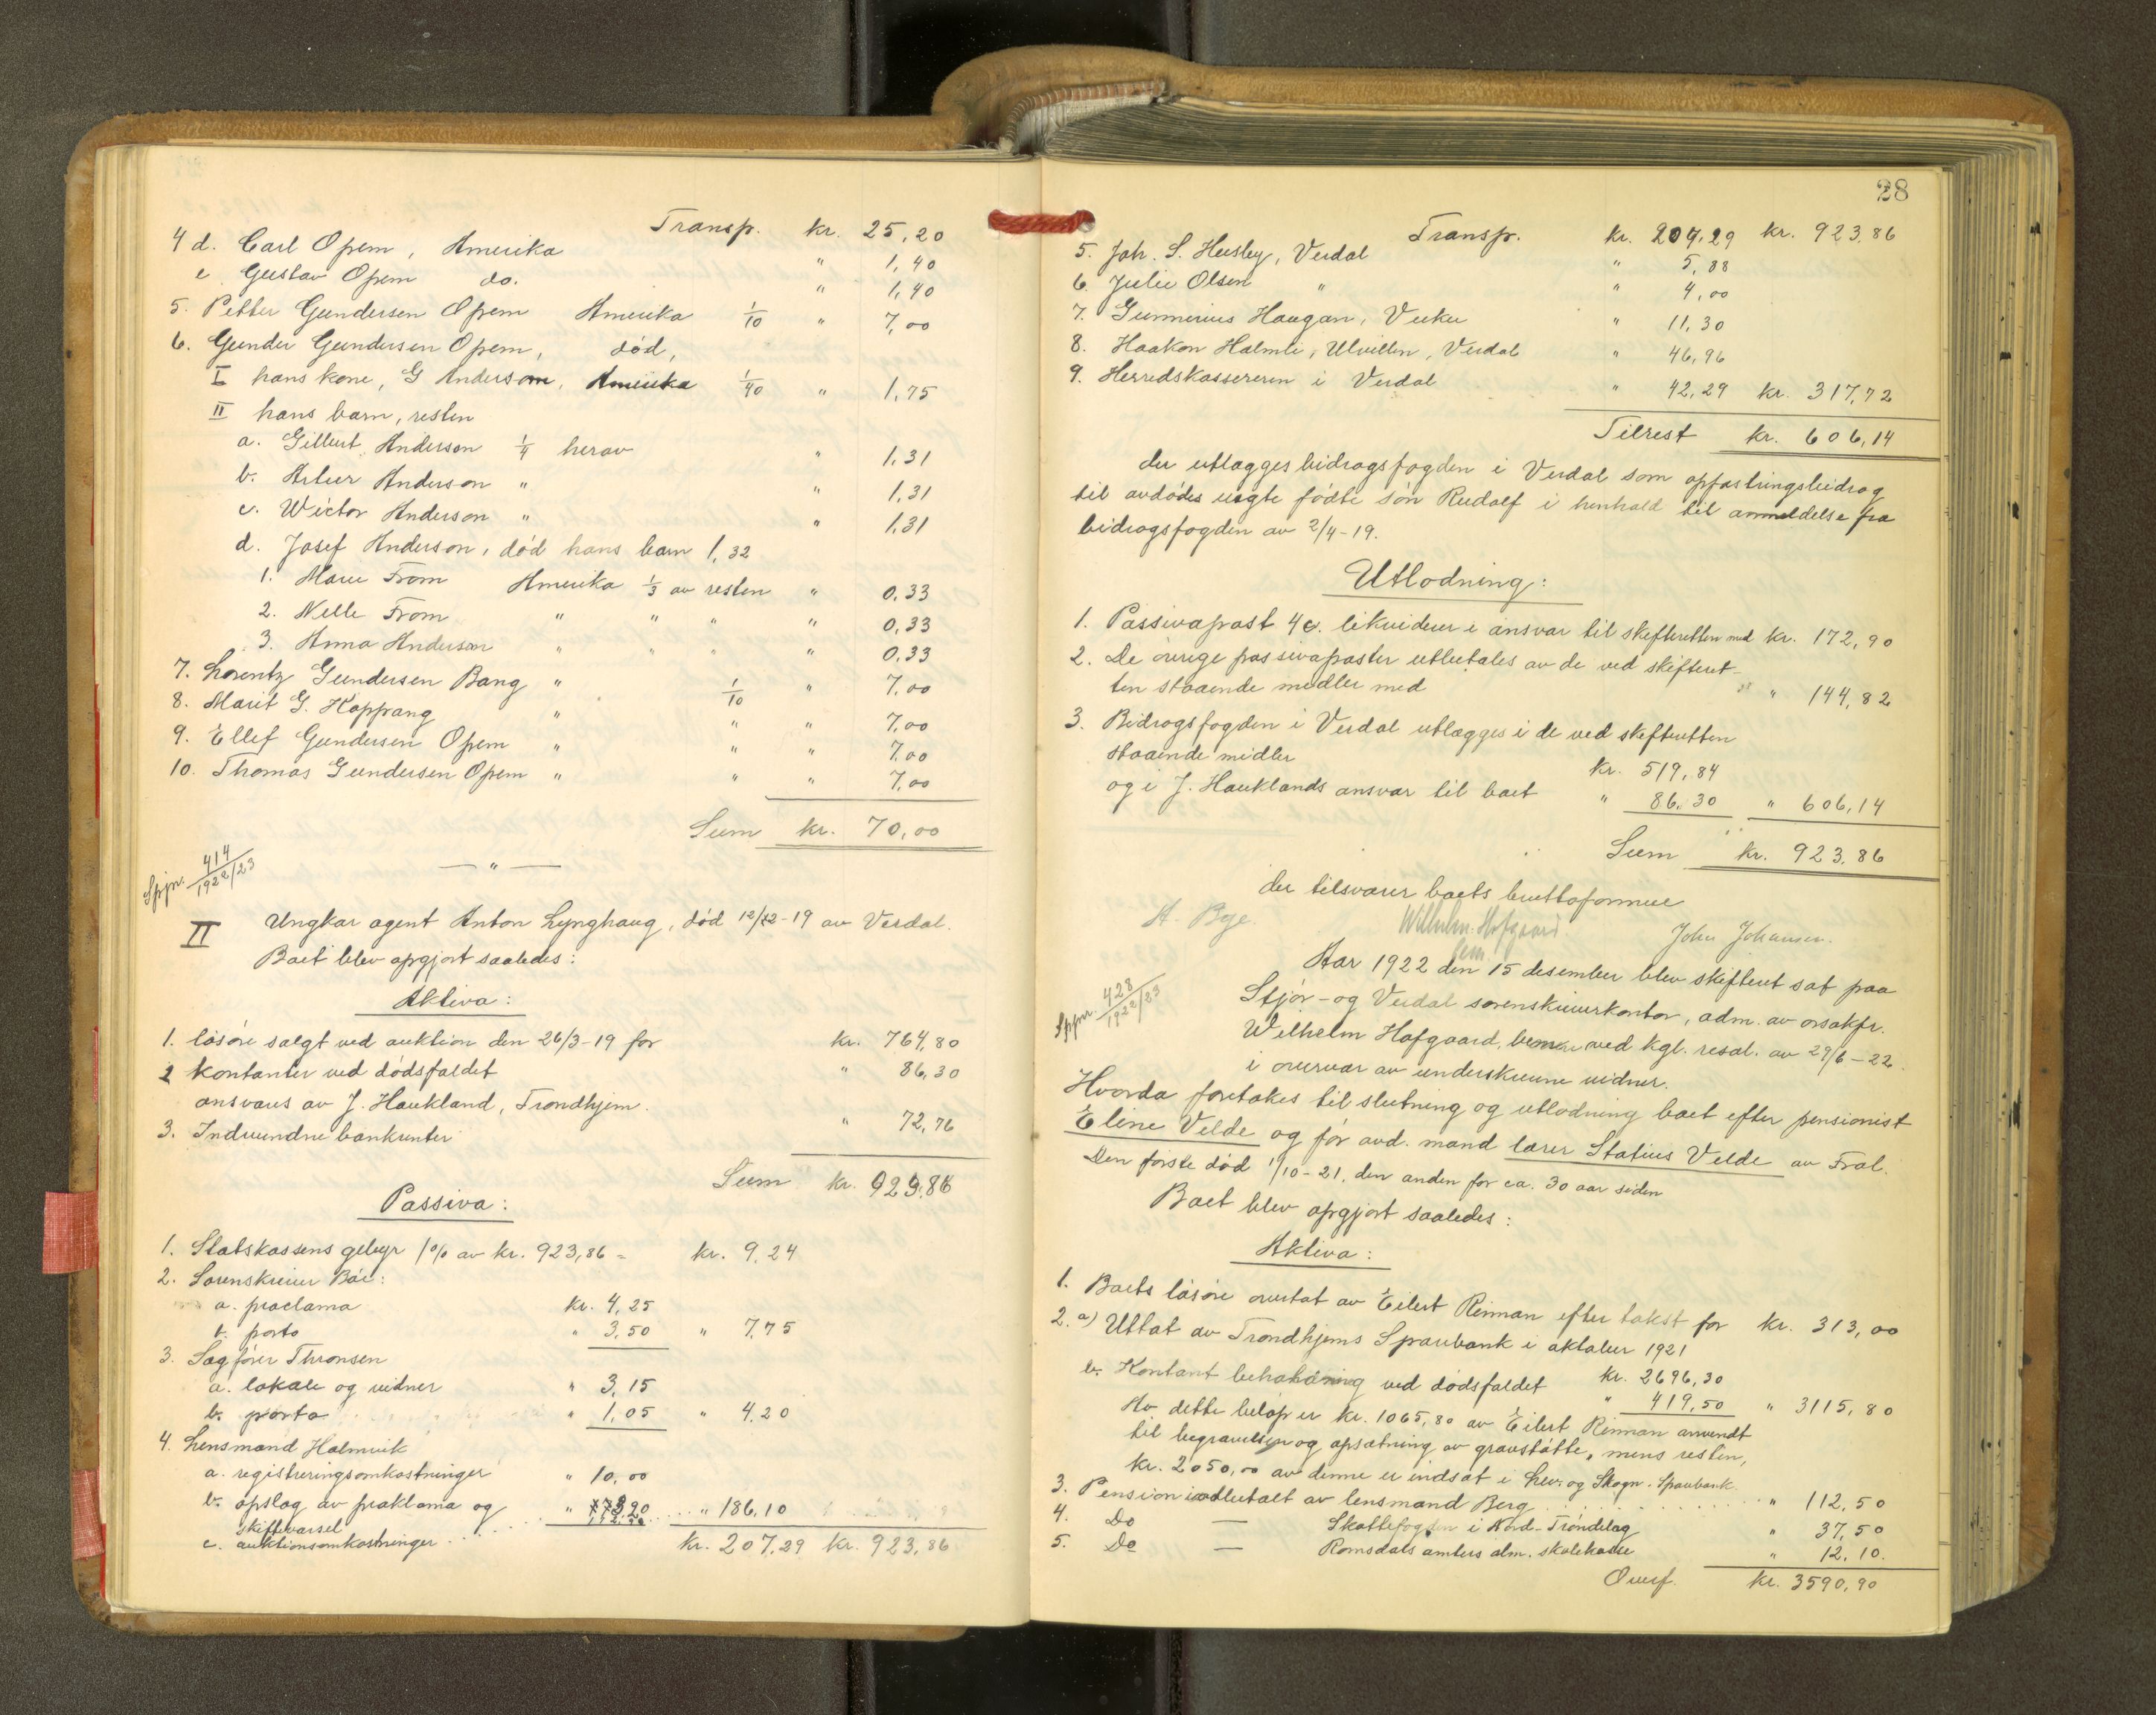 Transp. kr. 25,20
4 d. Carl Opem, Amerika " 1,40
e Gustav Opem do. " 1,40
5. Petter Gundersen Opem Amerika 1/10 " 7,00
6. Gunder Gundersen Opem, død,
I hans kone, G Anderson, Amerika 1/40 " 1,75
II hans barn, resten
a. Gilbert Anderson 1/4 herav " 1,31
b. Artur Anderson " " 1,31
c. Wictor Anderson " " 1,31
d. Josef Anderson, død hans barn 1,32
1. Marie From Amerika 1/3 av resten " 0,33
2. Nelle From " " " " 0,33
3. Anna Anderson " " " " 0,33
7. Lorentz Gundersen Bang " 1/10 " 7,00
8. Marit G. Hoppang " " " 7,00
9. Ellef Gundersen Opem " " " 7,00
10. Thomas Gundersen Opem " " " 7,00
Sum kr. 70,00
— " —
Spjn. 414 1922/23
II Ungkar agent Anton Lynghaug, død 12/12-19 av Verdal.
Boet blev opgjort saaledes:
Aktiva:
1. løsøre solgt ved auktion den 26/3-19 for kr. 764,80
2 kontanter ved dødsfaldet " 86,30
ansvares av J. Haukland, Trondhjem.
3. Indvundne bankrenter " 72,76
Sum kr. 923,86
Passiva:
1. Statskassens gebyr 1% av kr. 923,86 = kr. 9,24
2. Sorenskriver Bøe:
a. proclama kr. 4,25
b. porto " 3,50 " 7,75
3. Sagfører Thronsen
a. lokale og vidner " 3,15
b. porto " 1,05 " 4,20
4. Lensmand Holmvik
a. registreringsomkostninger " 10,00
b. opslag av proklama og skiftevarsel " 3,20 " 186,10
c. auktionsomkostninger 172,90
kr. 207,29 kr. 923,86
28
Transp. kr. 207,29 kr. 923,86
5. Joh. S. Husby, Verdal " 5,88
6. Julie Olsen " " 4,00
7. Gunnerius Haugan, Vuku " 11,30
8. Haakon Holmli, Ulvillen, Verdal " 46,96
9. Herredskassereren i Verdal " 42,29 kr. 317,72
Tilrest kr. 606,14
der utlægges bidragsfogden i Verdal som opfostringsbidrag
til avdødes uegte fødte søn Rudolf i henhold til anmeldelse fra
bidragsfogden av 2/4-19.
Utlodning:
1. Passivapost 4c. likviderer i ansvar til skifteretten med kr. 172,90
2. De øvrige passivaposter utbetales av de ved skifteret-
ten staaende midler med " 144,82
3. Bidragsfogden i Verdal utlægges i de ved skifteretten
staaende midler kr. 519,84
og i J. Hauklands ansvar til boet " 86,30 " 606,14
Sum kr. 923,86
der tilsvarer boets bruttoformue
A. Bye. Wilhelm Hofgaard John Johansen.
fem
Spjnr. 428 1922/23
Aar 1922 den 15 desember blev skifteret sat paa
Stjør- og Verdal sorenskriverkontor, adm. av orsakfr.
Wilhelm Hofgaard, bem. ved kgl. resol. av 29/6-22.
i overvær av underskrevne vidner.
Hvorda foretokes til slutning og utlodning boet efter pensionist
Eline Velde og før avd. mand lærer Statius Velde av Frol.
Den første død 1/10-21, den anden for ca. 30 aar siden
Boet blev opgjort saaledes:
Aktiva:
1. Boets løsøre overtat av Eilert Rinnan efter takst for kr. 313,00
2. a) Uttat av Trondhjems Sparebank i oktober 1921 kr. 2696,30
b. Kontant beholdning ved dødsfaldet " 419,50 " 3115,80
Av dette beløp er kr. 1065,80 av Eilert Rinnan anvendt
til begravelsen og opsætning av gravstøtte, mens resten,
kr. 2050,00 av denne er indsat i Lev. og Skogn. Sparebank
3. Pension indbetalt av lensmand Berg " 112,50
4. Do — Skattefogden i Nord-Trøndelag " 37,50
5. Do — Romsdals amters alm. skolekasse " 12,10.
Overf. kr. 3590,90